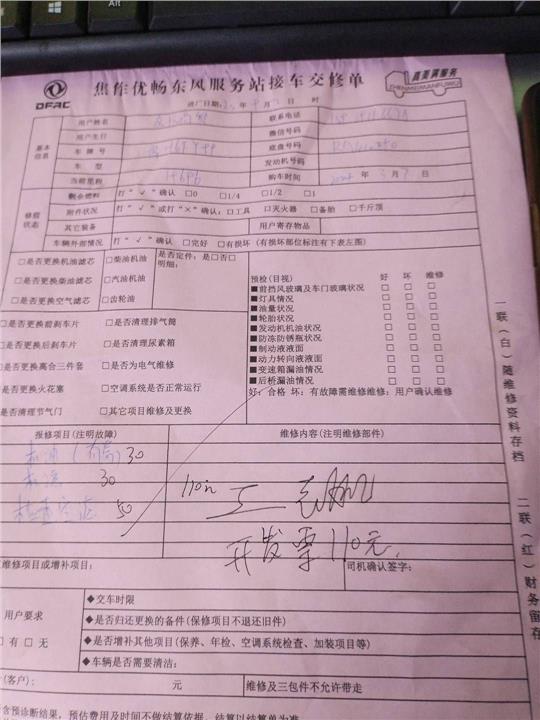 Alt
DFAC
焦作优畅东风服务站接车交修单
真美满服务
ZHENMEIMANFUWU
进厂日期: 年 月 日 时
基本信息
用户姓名
联系电话
用户生日
微信号码
车牌号
底盘号码
车型
发动机号码
当前里程
购车时间 年 3月 日
修前状态
剩余燃料 打“√”确认 □0 □1/4 □1/2 □1
附件状况 打“√”或打“×”确认:□工具 □灭火器 □备胎 □千斤顶
其它装备
用户寄存物品
车辆外部情况 打“√”确认 □完好 □有损坏(有损坏部位标注有下表左图)
□是否更换机油滤芯
□是否更换柴油滤芯
□是否更换空气滤芯
□柴油机油
□汽油机油
□齿轮油
是否定件:是□否□
明细:
预检(目视) 好 坏 维修
■前挡风玻璃及车门玻璃状况 □ □ □
■灯具情况 □ □ □
■油量状况 □ □ □
■轮胎状况 □ □ □
■发动机机油状况 □ □ □
■防冻防锈瓶状况 □ □ □
■制动液液面 □ □ □
■动力转向液液面 □ □ □
■变速箱漏油情况 □ □ □
■后桥漏油情况 □ □ □
好:合格 坏:有故障需维修维修:用户确认维修
□是否更换前刹车片 □是否清理排气筒
□是否更换后刹车片 □是否清理尿素箱
□是否更换离合三件套 □是否为电气维修
是否更换火花塞 □空调系统是否正常运行
是否清理节气门 □其它项目维修及更换
报修项目(注明故障)
维修内容(注明维修部件)
30
30
50
工
开发票110元
维修项目或增补项目:
司机确认签字:
用户要求
有 □ 无
◆交车时限
◆是否归还更换的备件(保修项目不退还旧件)
◆是否增补其他项目(保养、年检、空调系统检查、加装项目等)
◆车辆是否需要清洁:
(客户): 元
维修及三包件不允许带走
含预诊断结果,预估费用及时间不做结算依据,结算以结算单为准
一联(白)随维修资料存档
二联(红)财务留存